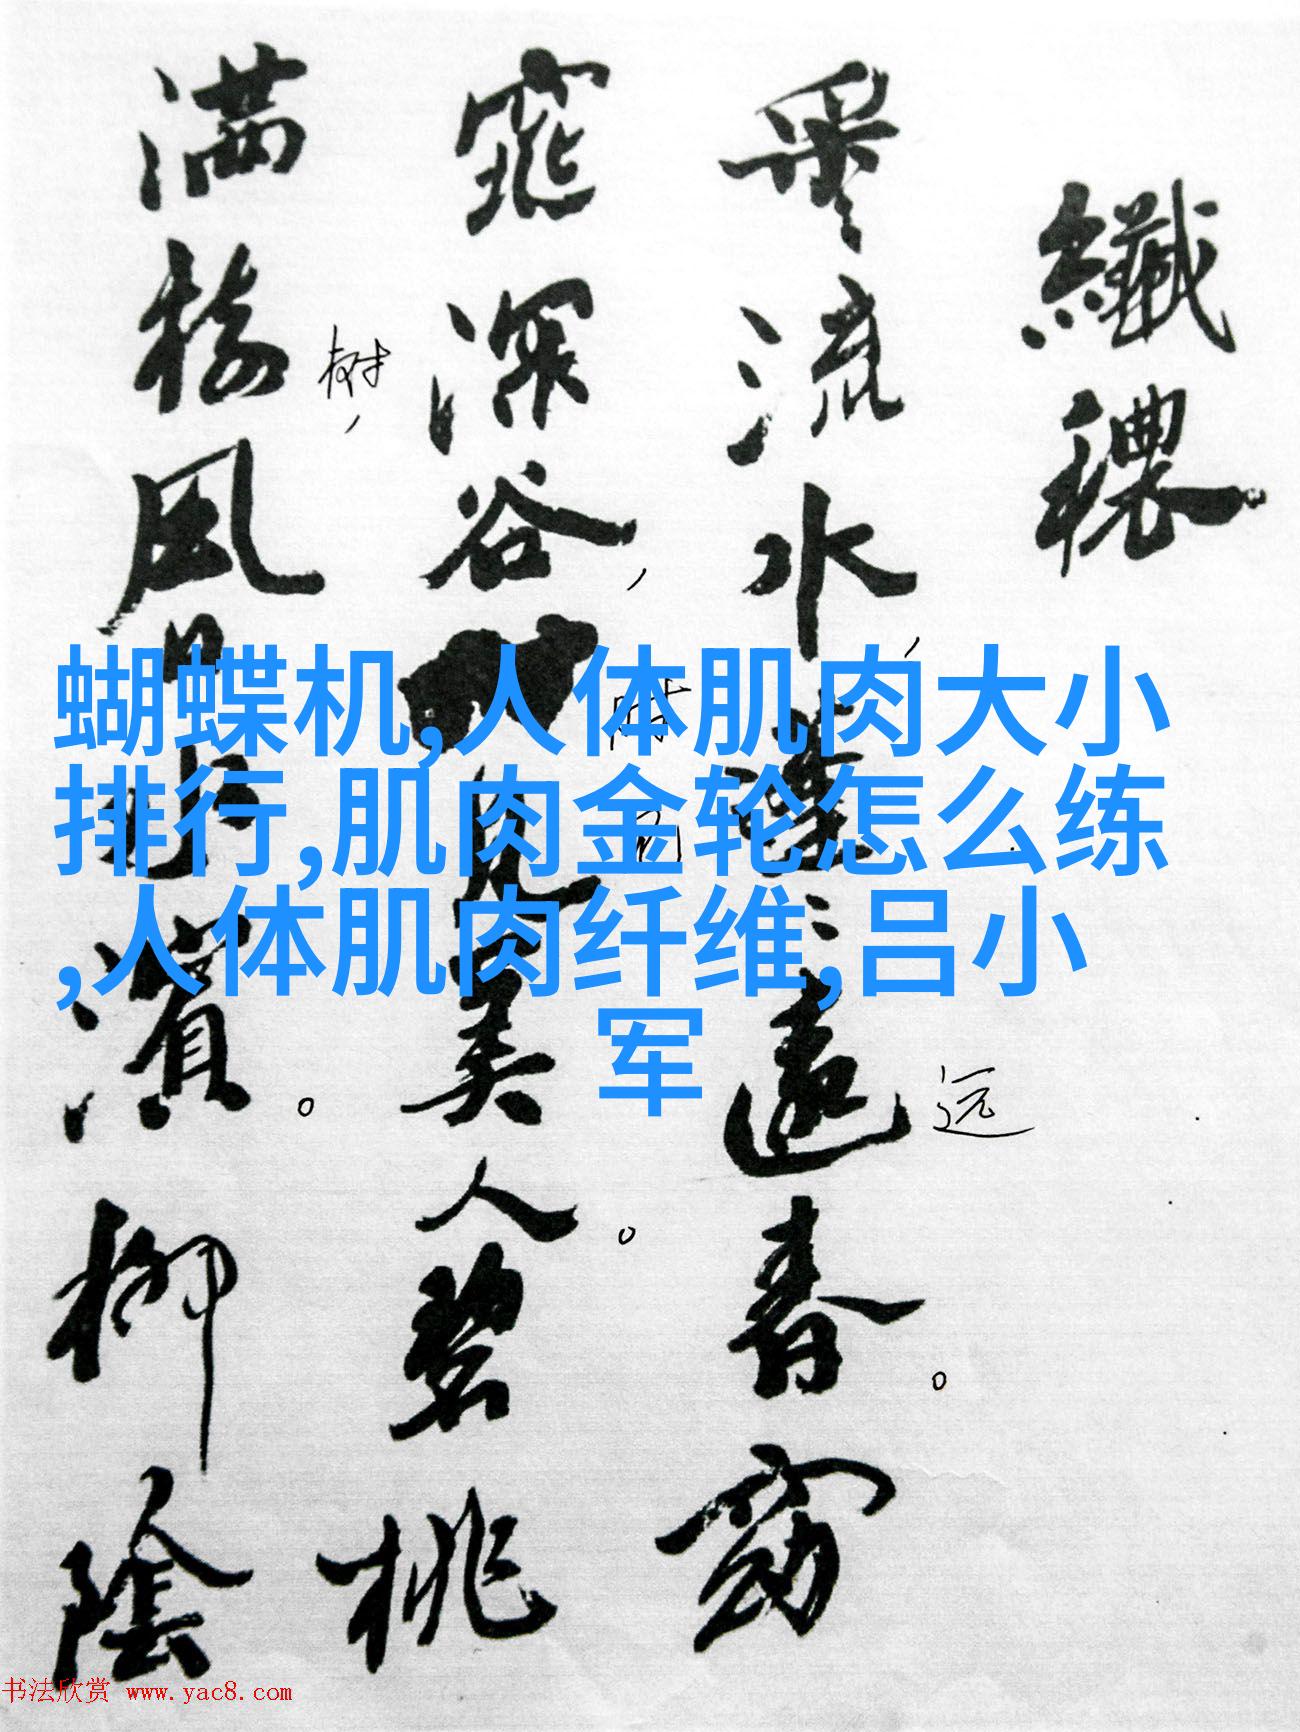 纖穠
采〻流水，蓬〻遠春。窈
远
窕深谷，見美人。碧桃
时
满樹風日水濱。柳陰
树，
蝴蝶机,人体肌肉大小
排行,肌肉金轮怎么练
,人体肌肉纤维,吕小
军
书法欣赏 www.yac8.com